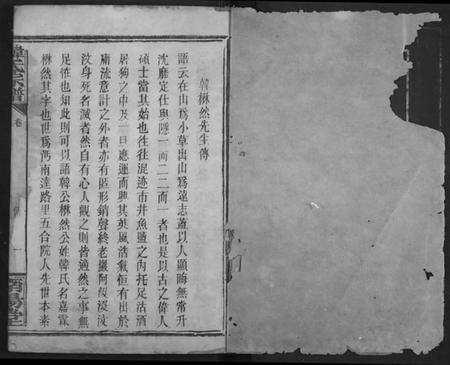 韓楙然先生傳
語云在山爲小草出山爲遠志蓋以人顯晦無常升
沈靡定仕與隱一而二二而一者也是以古之偉人
碩士當其始也往往混迹市井魚鹽之內托足沽酒
屠狗之中及一旦應運而興其英風浩氣恒有出於
庸流意計之外者亦有匿形銷聲終老巖阿
汶身死名滅者然自有心人觀之則皆適然之事無
足怪也知此則可以誦韓公楙然公姓韓氏名嘉霖
楙然其字也世爲沔南達路里五合院人先世本素
韓氏宗譜
卷
一